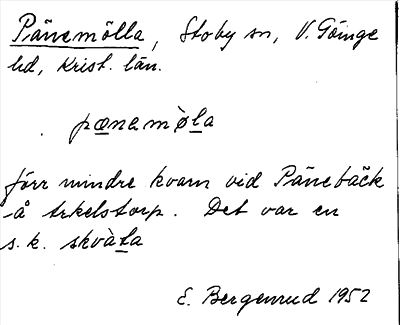 Pänemölla, Stoby sn, V. Göinge
hd, Krist. län.
pænemòla
förr mindre kvarn vid Pänebäck
-å Ickelstorp. Det var en
s.k. skvàla
E. Bergenrud 1952